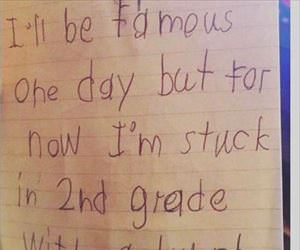 I'll be famous
one day but for
now I'm stuck
in 2nd grade
with